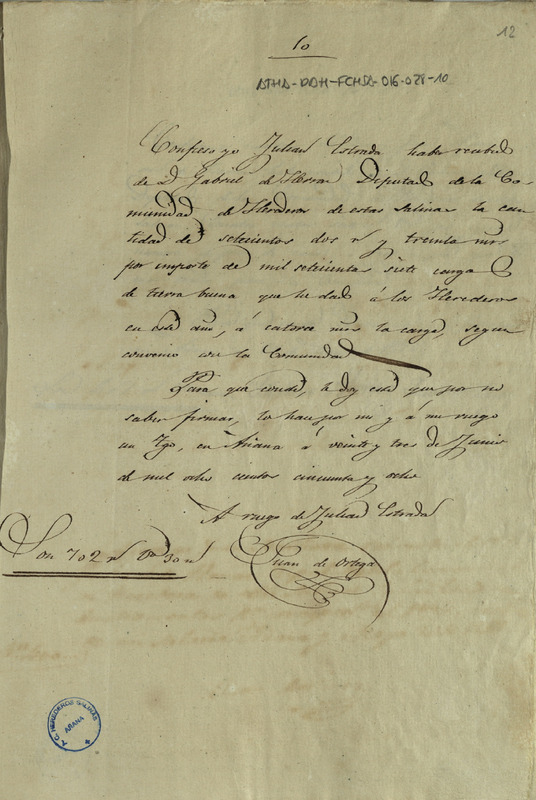 12
10
ATHA-DAH-FCHSA-016-028-10
Confieso yo Julian Estrada haber recibido
de D. Gabriel de Herran Diputado de la Co-
munidad de Herederos de estas Salinas la can-
tidad de setecientos dos r.s y treinta mrs
por importe de mil setecientas siete cargas
de tierra buena que he dado á los Herederos
en este año, á catorce mrs la carga, segun
convenio con la Comunidad
Para que conste, le doy este que por no
saber firmar, lo hace por mi y á mi ruego
un Tgo, en Añana á veinte y tres de Junio
de mil ocho cientos cincuenta y ocho
A ruego de Julian Estrada
Son 702 r.s 30 m
Juan de Ortega
A. C. HEREDEROS SALINAS
AÑANA